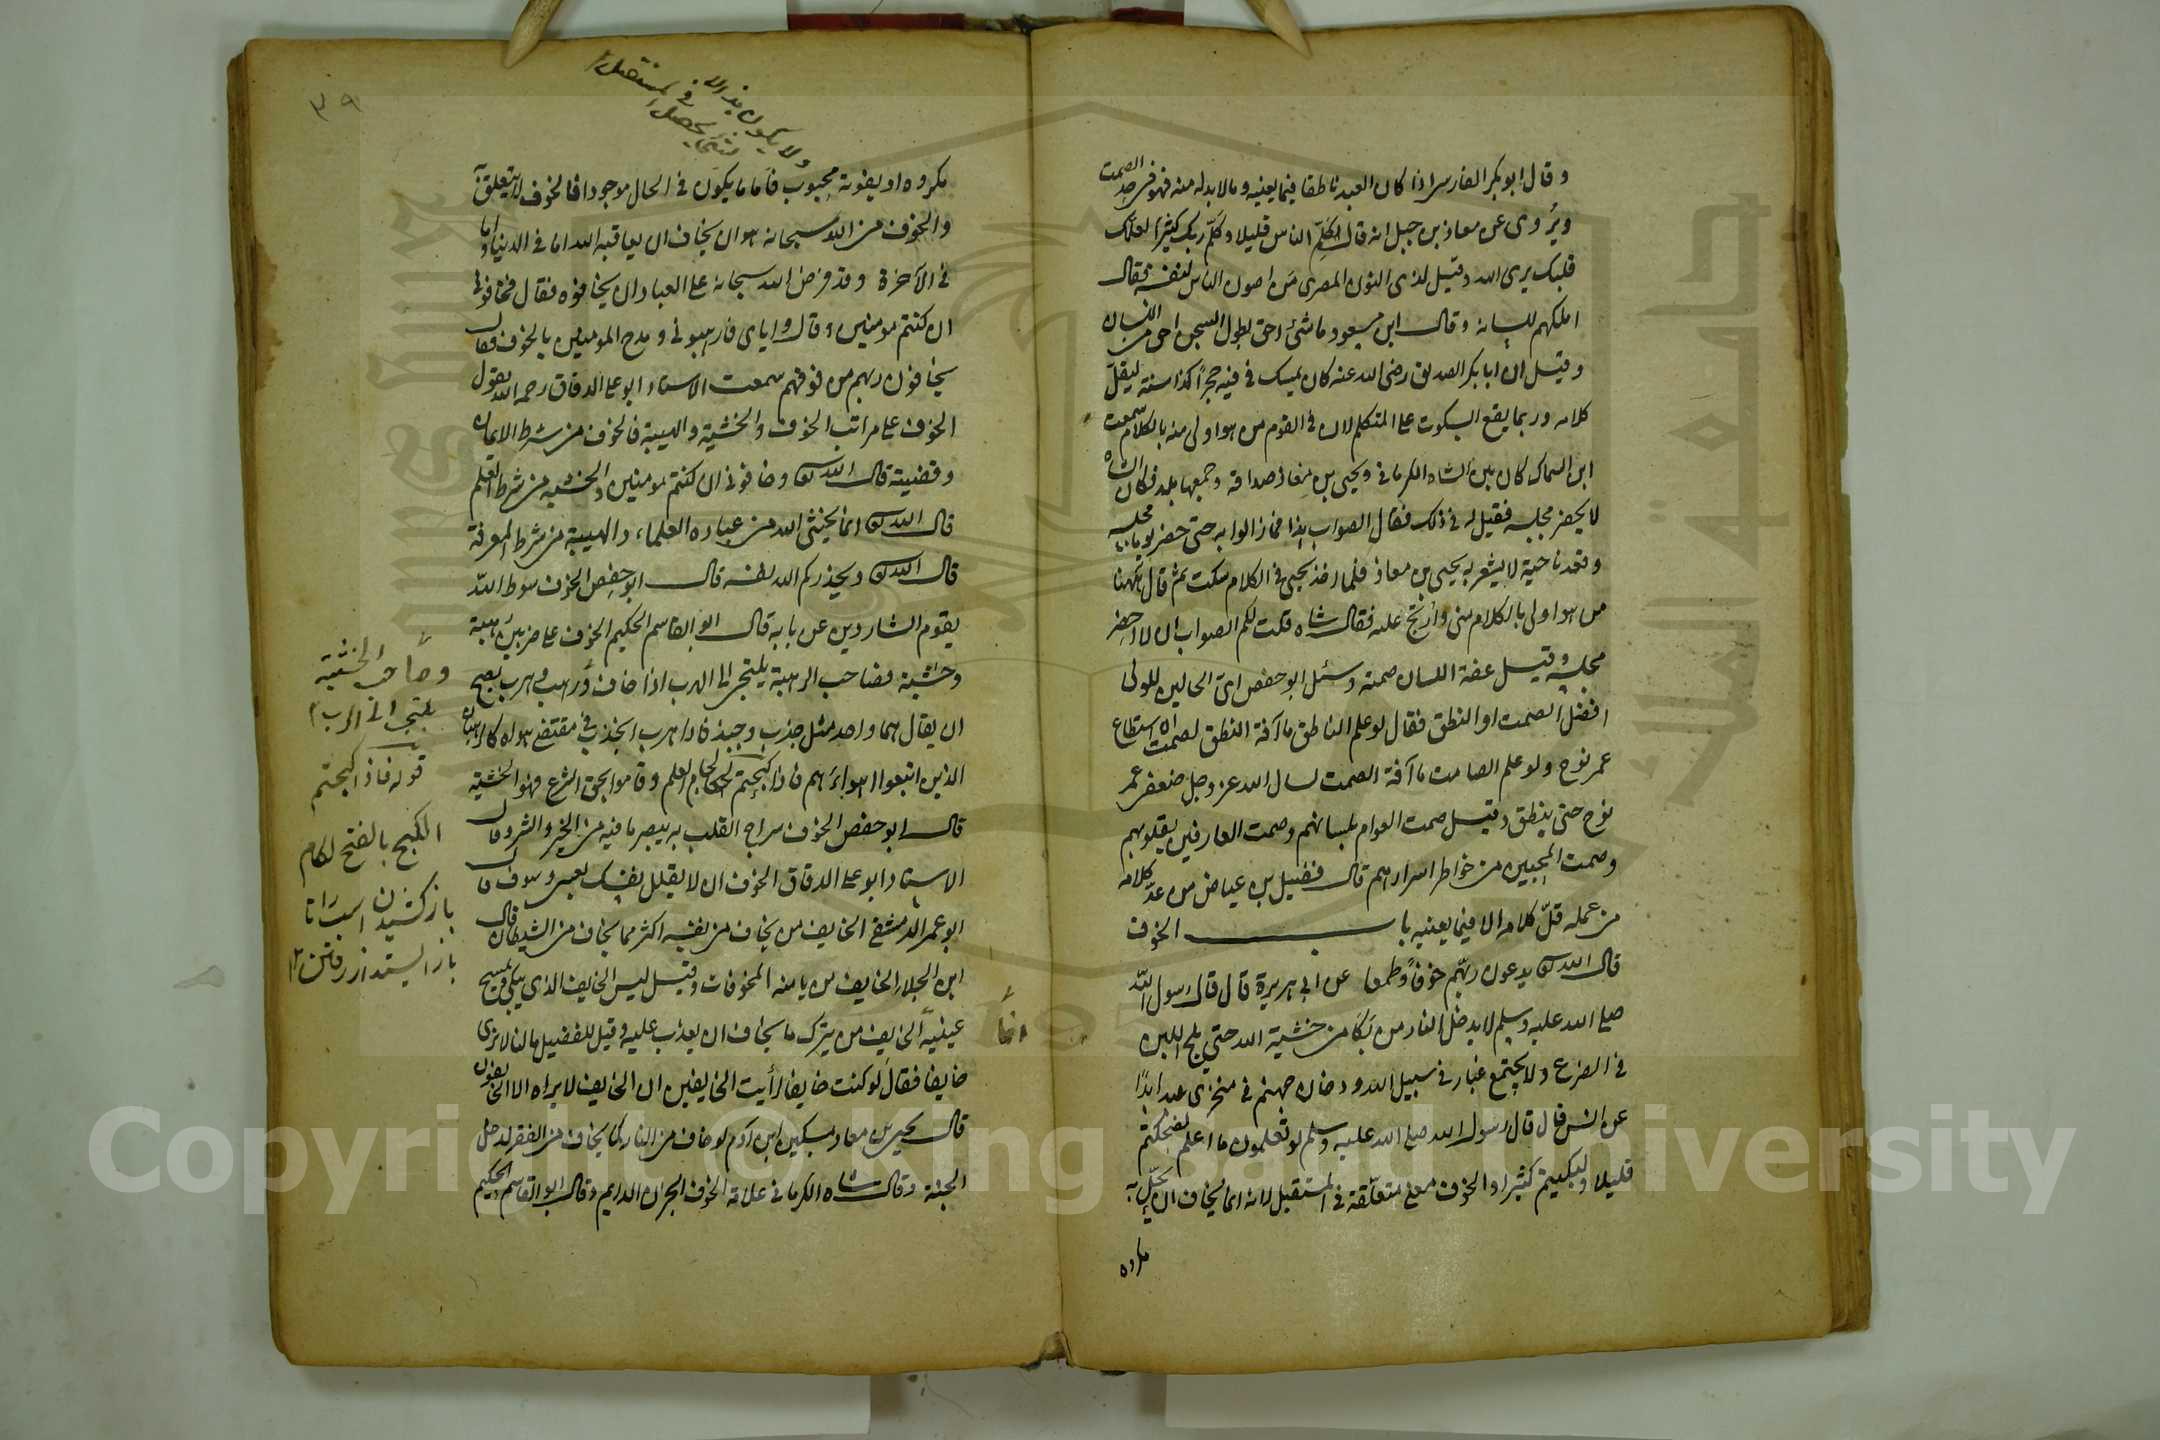 وقال ابو بكر الفارسي اذا كان العبد ناطقا فيما يعنيه وما لا بد له منه فهو في حد الصمت
ويُروى عن معاذ بن جبل انه قال كلّم الناس قليلا وكلّم ربك كثيرا لعلّ
قلبك يرى الله وقيل لذى النون المصرى من اصون الناس لنفسه فقال
املكهم للسانه وقال ابن مسعود ما شئ احق بطول السجن احق من اللسان
وقيل ان ابا بكر الصديق رضى الله عنه كان يمسك فى فيه حجراً كذا سنة ليقلّ
كلامه وربما يقع السكوت على المتكلم لان فى القوم من هو اولى منه بالكلام سمعت
ابن السماك كان بين الشاه الكرمانى ويحيى بن معاذ صداقة وجمعهما بلد فكان الشاه
لا يحضر مجلسه فقيل له فى ذلك فقال الصواب هذا فما زالوا به حتى حضر يوما مجلسه
وقعد ناحية لا يشعر به يحيى بن معاذ فلما اخذ يحيى فى الكلام سكت ثم قال ههنا
من هو اولى بالكلام منى وارتج عليه فقال شاه قلت لكم الصواب ان لا احضر
مجلسه وقيل عفة اللسان صمته وسئل ابو حفص اى الحالين للولى
افضل الصمت او النطق فقال لو علم الناطق ما آفة النطق لصمت ان استطاع
عمر نوح ولو علم الصامت ما آفة الصمت لسال الله عز وجل ضعفى عمر
نوح حتى ينطق وقيل صمت العوام بلسانهم وصمت العارفين بقلوبهم
وصمت المحبين من خواطر اسرارهم قال فضيل بن عياض من عدّ كلامه
من عمله قلّ كلامه الا فيما يعنيه باب الخوف
قال الله تع يدعون ربّهم خوفاً وطمعا عن ابى هريرة قال قال رسول الله
صلى الله عليه وسلم لا يدخل النار من بكا من خشية الله حتى يلج اللبن
فى الضرع ولا يجتمع غبار فى سبيل الله ودخان جهنم فى منخرى عبد ابدًا
عن انس قال قال رسول الله صلى الله عليه وسلم لو تعلمون ما اعلم لضحكتم
قليلا ولبكيتم كثيرا والخوف معنى متعلّقة فى المستقبل لانه انما يخاف ان يحلّ به
مكروه
٣٩
ولا يكون هذا الا
فى
لمستقبل
مكروه او يفوته محبوب فاما ما يكون فى الحال موجودا فالخوف لا يتعلق به
والخوف من الله سبحانه هو ان يخاف ان يعاقبه الله اما فى الدنيا واما
فى الآخرة وقد فرض الله سبحانه على العباد ان يخافوه فقال فخافونى
ان كنتم مومنين وقال واياى فارهبونى ومدح المومنين بالخوف فقال
يخافون ربهم من فوقهم سمعت الاستاد ابو على الدقاق رحمه الله يقول
الخوف على مراتب الخوف والخشية والهيبة فالخوف من شرط الايمان
وقضيته قال الله تع وخافونى ان كنتم مومنين والخشية من شرط العلم
قال الله تع انما يخشى الله من عباده العلماء والهيبة من شرط المعرفة
قال الله تع ويحذركم الله نفسه قال ابو حفص الخوف سوط الله
يقوم الشاردين عن بابه قال ابو القاسم الحكيم الخوف على ضربين رهبة
وخشية فصاحب الرهبة يلتجى الى الهرب اذا خاف ورهب وهرب يصح
ان يقال هما واحد مثل جذب وجبذ فاذا هرب انجذب فى مقتضى هواه كالرهبان
الذين اتبعوا اهواءهم فاذا كبحتم لجام العلم وقاموا بحق الشرع فهو الخشية
قال ابو حفص الخوف سراج القلب به يبصر ما فيه من الخير والشر وقال
الاستاد ابو على الدقاق الخوف ان لا تعلل نفسك بعسى وسوف قال
ابو عمر الدمشقى الخايف من يخاف من نفسه اكثر مما يخاف من الشيطان قال
ابن الجلاء الخايف من يامنه المخوفات وقيل ليس الخايف الذى يبكى ويمسح
عينيه انما الخايف من يترك ما يخاف ان يعذب عليه وقيل للفضيل ما لنا لا نرى
خايفا فقال لو كنت خايفا لرأيت الخايفين ان الخايف لا يراه الا الخايفون
قال يحيى بن معاد مسكين ابن آدم لو خاف من النار كما يخاف من الفقر لدخل
الجنة وقال شاه الكرمانى علامة الخوف الحزن الدايم وقال ابو القاسم الحكيم
وصاحب الخشية
يلتجى الى الرب ١٢
قوله فاذا كبحتم
الكبح بالفتح لكام
باز كشيدن اسب را تا
باز ايستد از رفتن ١٢
انما
Copyright © King Saud University
جامعة الملك سعود